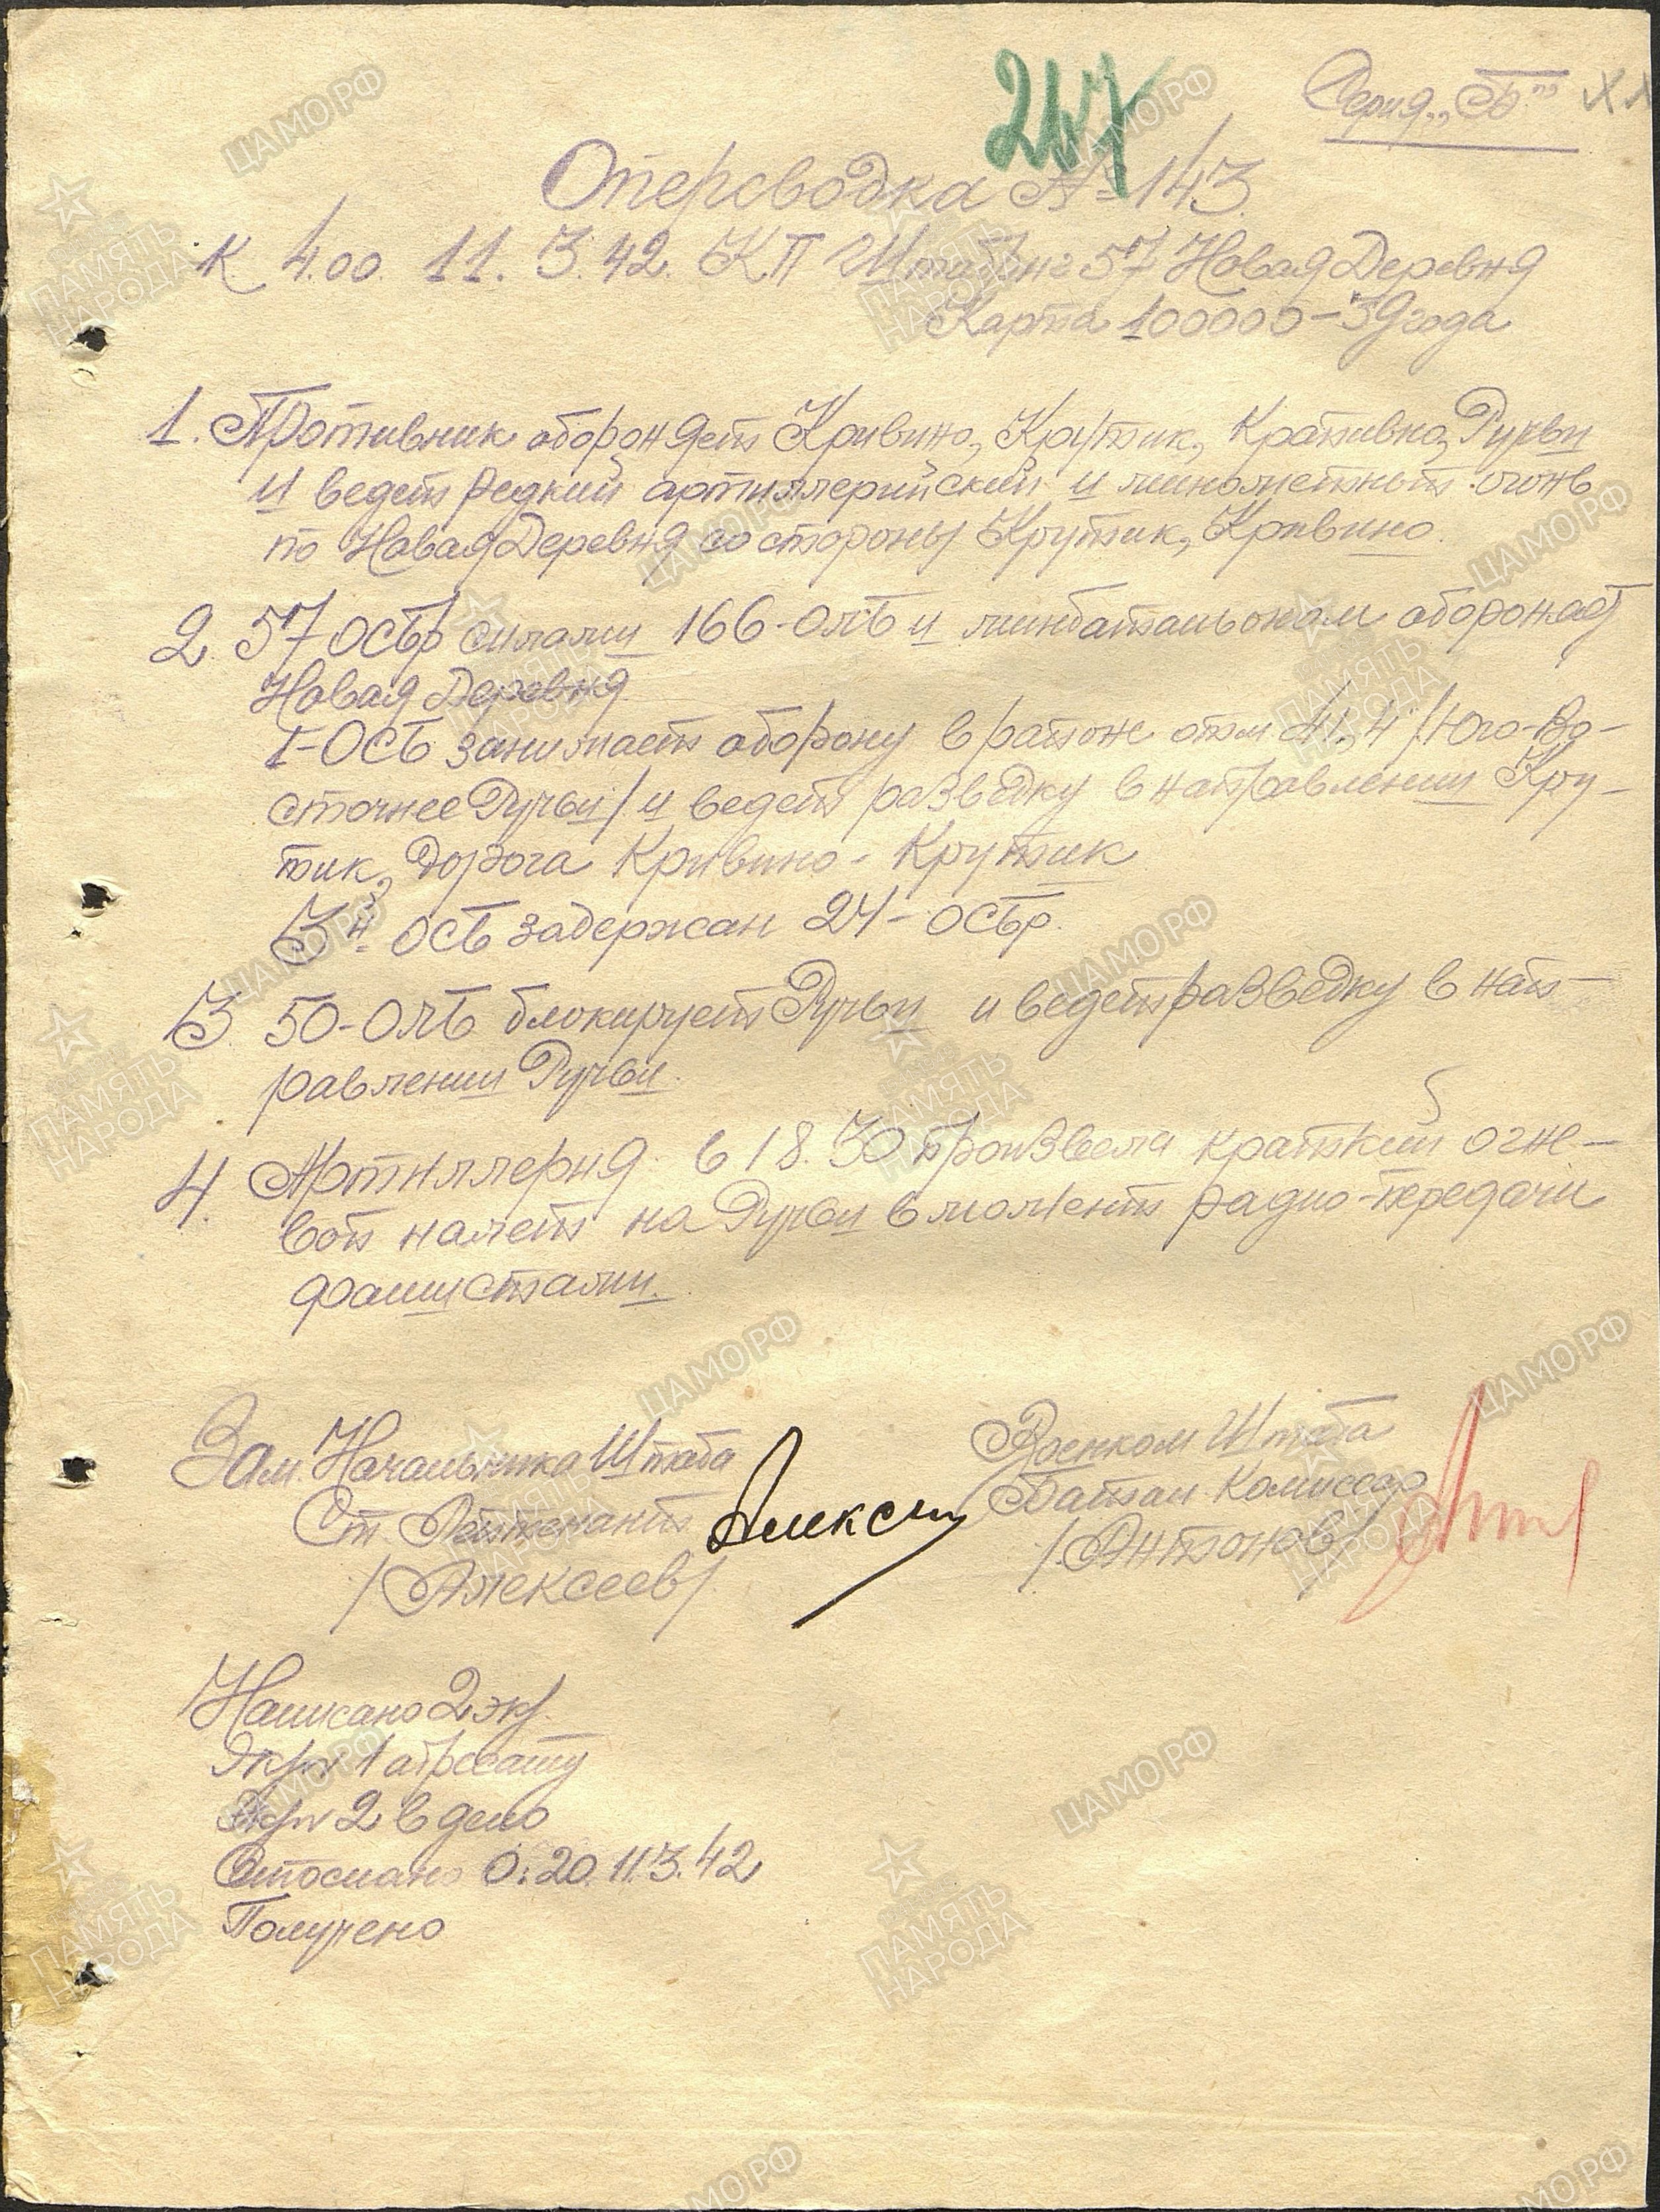 247
Серия „Б"
Оперсводка № 143.
К 4.00. 11.3.42. КП Штабриг 57 Новая Деревня
Карта 100000-39 года
1. Противник обороняет Кривино, Крутик, Крапивно, Ручьи
и ведет редкий артиллерийский и минометный огонь
по Новая Деревня со стороны Крутик, Кривино.
2. 57 ОСБр силами 166-ОЛБ и минбатальоном обороняет
Новая Деревня
1-ОСБ занимает оборону в районе отм 41,4 /Юго-Во-
сточнее Ручьи/ и ведет разведку в направлении Кру-
тик, дорога Кривино - Крутик
3й ОСБ задержан 24-ОСБр.
3. 50-ОЛБ блокирует Ручьи и ведет разведку в нап-
равлении Ручьи.
4. Артиллерия в 18.30 произвела краткий огне-
вой налет на Ручьи в момент радио-передачи
фашистами.
Зам. Начальника Штаба
Ст. Лейтенант
/Алексеев/
Военком Штаба
Батал. Комиссар
/Антонов/
Написано 2 экз.
Экз № 1 адресату
Экз № 2 в дело
Отослано 0:20. 11.3.42
Получено
ЦАМО.РФ
ПАМЯТЬ НАРОДА